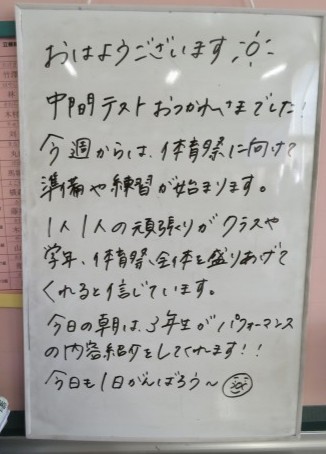 おはようございます
中間テストおつかれさまでした!
今週からは、体育祭に向けて
準備や練習が始まります。
1人1人の頑張りがクラスや
学年、体育祭全体を盛りあげて
くれると信じています。
今日の朝は、3年生がパフォーマンス
の内容紹介をしてくれます!!
今日も1日がんばろう〜